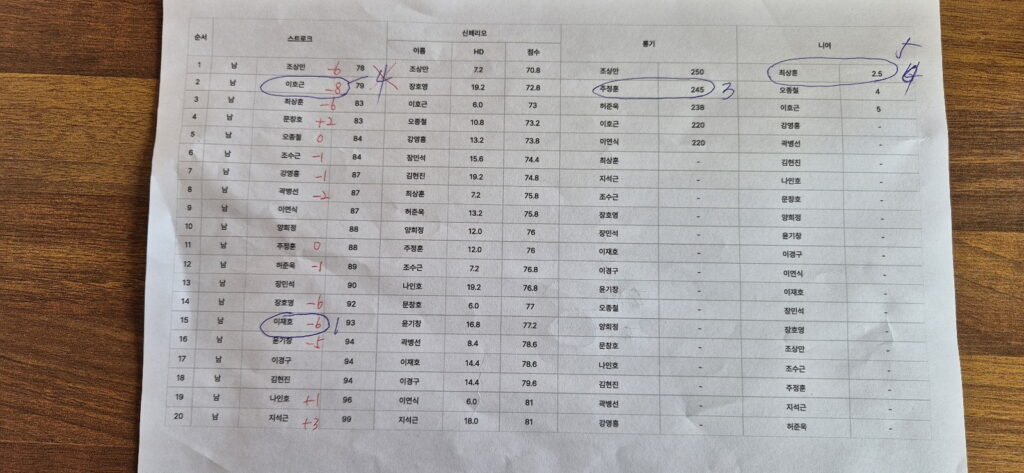 순서 스트로크 신페리오 롱기 니어
이름 HD 점수
1 남 조상만 -6 78 조상만 7.2 70.8 조상만 250 최상훈 2.5
2 남 이호근 -8 79 장호영 19.2 72.8 주정훈 245 3 오종철 4
3 남 최상훈 -6 83 이호근 6.0 73 허준욱 238 이호근 5
4 남 문창호 +2 83 오종철 10.8 73.2 이호근 220 강영흥 -
5 남 오종철 0 84 강영흥 13.2 73.8 이연식 220 곽병선 -
6 남 조수근 -1 84 장민석 15.6 74.4 최상훈 - 김현진 -
7 남 강영흥 -1 87 김현진 19.2 74.8 지석근 - 나인호 -
8 남 곽병선 -2 87 최상훈 7.2 75.8 조수근 - 문창호 -
9 남 이연식 87 허준욱 13.2 75.8 장호영 - 양희정 -
10 남 양희정 88 양희정 12.0 76 장민석 - 윤기창 -
11 남 주정훈 0 88 주정훈 12.0 76 이재호 - 이경구 -
12 남 허준욱 -1 89 조수근 7.2 76.8 이경구 - 이연식 -
13 남 장민석 90 나인호 19.2 76.8 윤기창 - 이재호 -
14 남 장호영 -6 92 문창호 6.0 77 오종철 - 장민석 -
15 남 이재호 -6 93 윤기창 16.8 77.2 양희정 - 장호영 -
16 남 윤기창 -5 94 곽병선 8.4 78.6 문창호 - 조상만 -
17 남 이경구 94 이재호 14.4 78.6 나인호 - 조수근 -
18 남 김현진 94 이경구 14.4 79.6 김현진 - 주정훈 -
19 남 나인호 +1 96 이연식 6.0 81 곽병선 - 지석근 -
20 남 지석근 +3 99 지석근 18.0 81 강영흥 - 허준욱 -